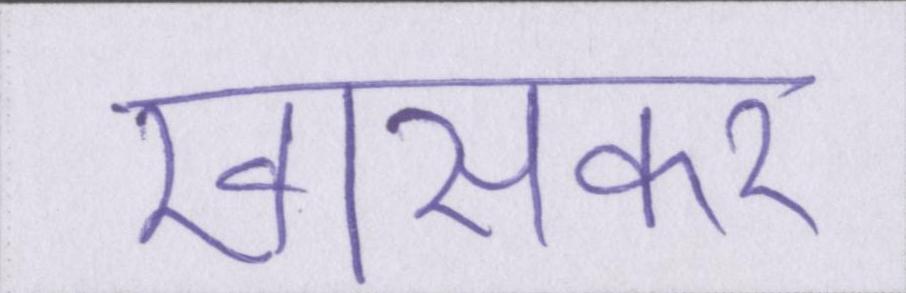 खासकर